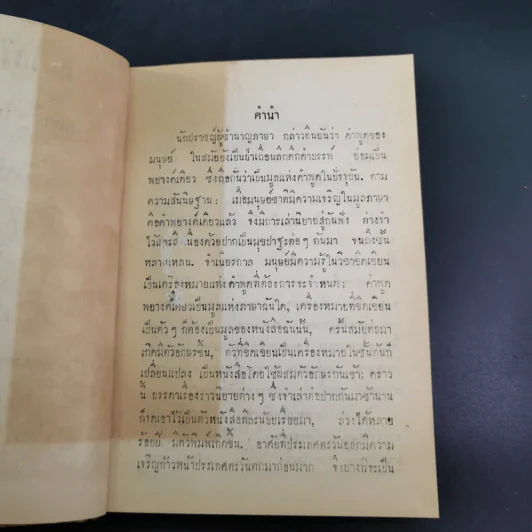 คำนำ
นักปราชญ์ผู้ชำนาญภาษา กล่าวยืนยันว่า คำพูดของ
มนุษย์ ในสมัยยังเป็นป่าเถื่อนลึกดึกดำบรรพ์ ย่อมเป็น
พยางค์เดียว ซึ่งถือกันว่าเป็นมูลแห่งคำพูดในปัจจุบัน. ตาม
ความสันนิษฐาน: เมื่อมนุษย์ชาติมีความเจริญในมูลภาษา
คือคำพยางค์เดียวแล้ว จึงมีการเล่านิยายสู่กันฟัง ต่างจำ
ไว้ เนื่องด้วยปากเป็นมุขปาฐะต่อ ๆ กันมา จนถึงชั้น
หลานเหลน. จำเนียรกาล มนุษย์มีความรู้ในวิชาขีดเขียน
เป็นเครื่องหมายแห่งคำพูดที่ต้องการจะกำหนด: คำพูด
พยางค์เดียวเป็นมูลแห่งภาษาฉันใด, เครื่องหมายที่ขีดเขียน
เป็นตัว ๆ ก็ต้องเป็นมูลของหนังสือฉันนั้น, ครั้นสมัยต่อมา
เกิดมีตัวอักษรขึ้น, ตัวที่ขีดเขียนเป็นเครื่องหมายในชั้นต้นก็
เปลี่ยนแปลง เป็นหนังสือโดยใช้ผสมตัวอักษรกันเข้า: คราว
นี้ บรรดาเรื่องราวนิยายต่าง ๆ ซึ่งจำเล่าต่อปากกันมาช้านาน
ก็จดเอาไว้เป็นตัวหนังสือทีละน้อยเรื่อยมา, ล่วงได้หลาย
ร้อยปี มีตัวพิมพ์เกิดขึ้น. อาศัยที่ประเทศตะวันออกมีความ
เจริญก้าวหน้าประเทศตะวันตกมาก่อนมาก จึงบางทีจะเป็น